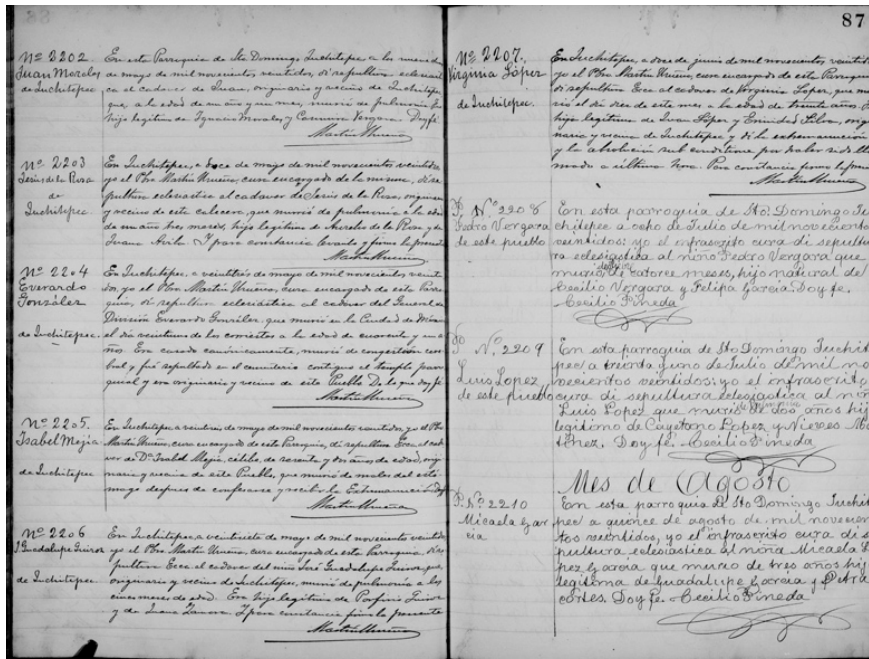 Nº 2202
Juan Morales
de Juchitepec.
En esta Parroquia de Sto Domingo Juchitepec a los nueve dias
de mayo de mil novecientos veintidos, dí sepultura eclesiasti
ca al cadaver de Juan, originario y vecino de Juchitepec
que, a la edad de un año y un mes, murió de pulmonia
hijo legítimo de Ignacio Morales, y Casimira Vergara. Doy fé
Martín Urueña
Nº 2203
Jesús de la Rosa
de
Juchitepec.
En Juchitepec, a doce de mayo de mil novecientos veintidos
yo el Pbro. Martín Urueña, cura encargado de la misma, dí se
pultura eclesiastica al cadaver de Jesús de la Rosa, originario
y vecino de esta cabecera, que murió de pulmonia a la edad
de un año tres meses, hijo legítimo de Aurelio de la Rosa y de
Juana Avila. Y para constancia levanto y firmo la presente
Martín Urueña
Nº 2204
Everardo
González
de Juchitepec.
En Juchitepec, a veintitrés de mayo de mil novecientos veinti
dos, yo el Pbro. Martín Urueña, cura encargado de esta Parro
quia, dí sepultura eclesiástica al cadaver del General de
División Everardo González, que murió en la Ciudad de
el dia veintiuno de los corrientes a la edad de cuarenta y un a
ños. Era casado canónicamente, murió de congestión cere
bral y fué sepultado en el cementerio contiguo al templo parro
quial y era originario y vecino de este Pueblo. De lo que doy fé
Martín Urueña
Nº 2205.
Isabel Mejia
de Juchitepec
En Juchitepec, a veintiseis de mayo de mil novecientos veintidos, yo el Pbro
Martín Urueña, cura encargado de esta Parroquia, dí sepultura Ecca. al cada
ver de Dª Isabel Mejia, célibe, de sesenta y dos años de edad, orig
naria y vecina de este Pueblo, que murió de males del estó
mago despues de confesarse y recibir la Extremaunción. Doy fé
Martín Urueña
Nº 2206
J. Guadalupe
de Juchitepec.
En Juchitepec, a veintisiete de mayo de mil novecientos veintidos
yo el Pbro. Martín Urueña, cura encargado de esta Parroquia, dí se
pultura Ecca. al cadaver del niño José Guadalupe que
originario y vecino de Juchitepec, murió de pulmonia a los
cinco meses de edad. Era hijo legítimo de Porfirio
y de Juana Zamora. Y para constancia firmo la presente
Martín Urueña
87
Nº 2207.
Virginia López
de Juchitepec.
En Juchitepec, a doce de junio de mil novecientos veintid
yo el Pbro. Martín Urueña, cura encargado de esta Parroqui
dí sepultura Ecca al cadaver de Virginia López, que mu
rió el dia once de este mes a la edad de treinta años.
hija legítima de Juan López y Trinidad Silva, orig
naria y vecina de Juchitepec y dí la extremaunción
y la absolución sub conditione por haber sido lla
mado a última hora. Para constancia firmo la presen
Martín Urueña
P. Nº 2208
Pedro Vergara
de este pueblo
En esta parroquia de Sto: Domingo Ju
chitepec a ocho de Julio de mil novecientos
veintidos: yo el infrascrito cura di sepultu
ra eclesiástica al niño Pedro Vergara que
murio de catorce meses, hijo natural de
Cecilio Vergara y Felipa Garcia. Doy fe.
Cecilio Pineda
P Nº 2209
Luis Lopez
de este pueblo
En esta parroquia de Sto Domingo Juchit
pec a treinta y uno de Julio de mil no
vecientos veintidos: yo el infrascrito
cura di sepultura eclesiastica al niñ
Luis Lopez que murio de dos años hij
legitimo de Cayetano Lopez y Nieves Ma
tinez. Doy fe. Cecilio Pineda
Mes de Agosto
P. Nº 2210
Micaela Gar
cia
En esta parroquia de Sto Domingo Juchi
pec a quince de agosto de mil novecien
tos veintidos, yo el infrascrito cura di s
pultura eclesiastica al niña Micaela L
pez Garcia que murio de tres años hij
legitima de Guadalupe Garcia y Petra
cortes. Doy fe. Cecilio Pineda